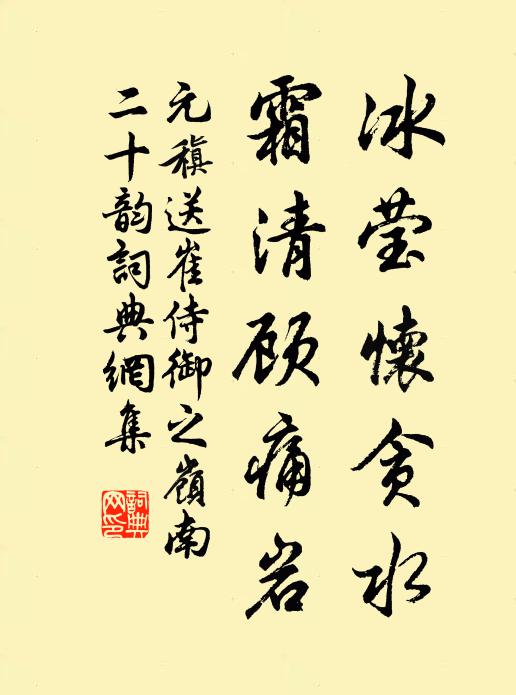 冰莹怀贪水
霜清顾痛岩
元稹送崔侍御之嶺南
二十韵詞典網集
詞典网印